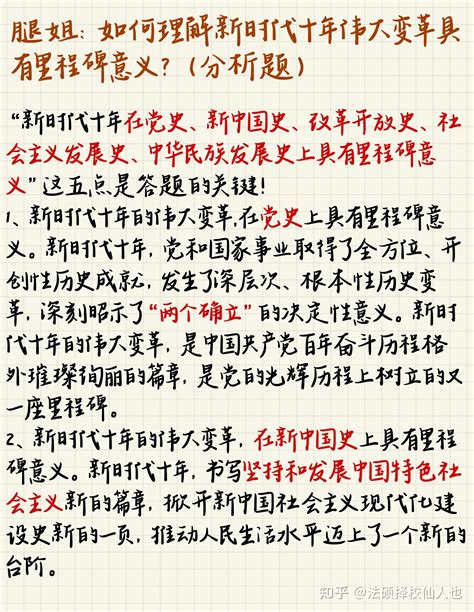 腿姐：如何理解新时代十年伟大变革具
有里程碑意义？（分析题）
“新时代十年在党史、新中国史、改革开放史、社
会主义发展史、中华民族发展史上具有里程碑意
义”这五点是答题的关键！
1、新时代十年的伟大变革，在党史上具有里程碑意
义。新时代十年，党和国家事业取得了全方位、开
创性历史成就，发生了深层次、根本性历史变
革，深刻昭示了“两个确立”的决定性意义。新时
代十年的伟大变革，是中国共产党百年奋斗历程格
外璀璨绚丽的篇章，是党的光辉历程上树立的又
一座里程碑。
2、新时代十年的伟大变革，在新中国史上具有里程
碑意义。新时代十年，书写坚持和发展中国特色
社会主义新的篇章，掀开新中国社会主义现代化建
设史新的一页，推动人民生活水平迈上了一个新的
台阶。
知乎 @法硕择校仙人也